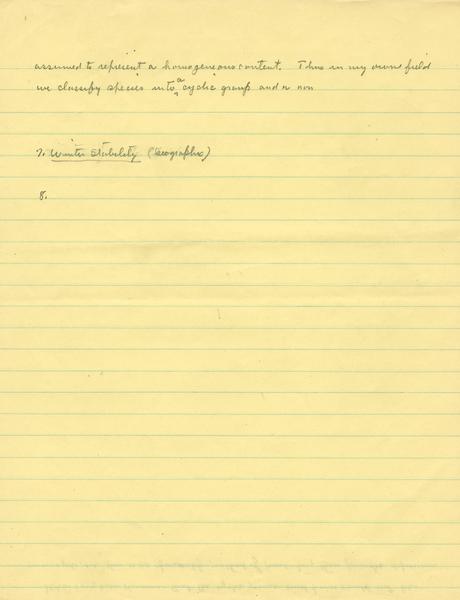 assumed to represent a homogeneous content. Thus in my own field
we classify species into a cyclic group and a non
7. Winter Stability (Geographic)
8.